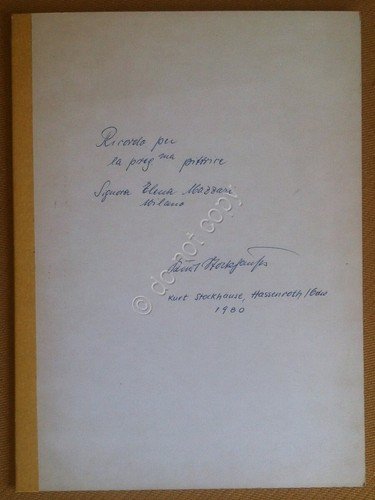 Ricordo per
la preg.ma pittrice
Signora Elena Mozzari
Milano
Kurt Stockhause, Hassenroth/Odw
1980
© do not copy